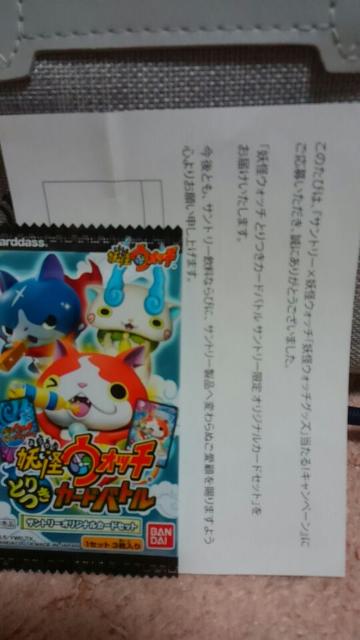 このたびは、「サントリー×妖怪ウォッチ「妖怪ウォッチグッズ」当たる!キャンペーン」に
ご応募いただき、誠にありがとうございました。
「妖怪ウォッチ とりつきカードバトル サントリー限定 オリジナルカードセット」を
お届けいたします。
今後とも、サントリー飲料ならびに、サントリー製品へ変わらぬご愛顧を賜りますよう
心よりお願い申し上げます。
arddass.
妖怪ウォッチ
妖怪ウォッチ
とりつきカードバトル
サントリーオリジナルカードセット
1セット 3枚入り
BAN
DAI